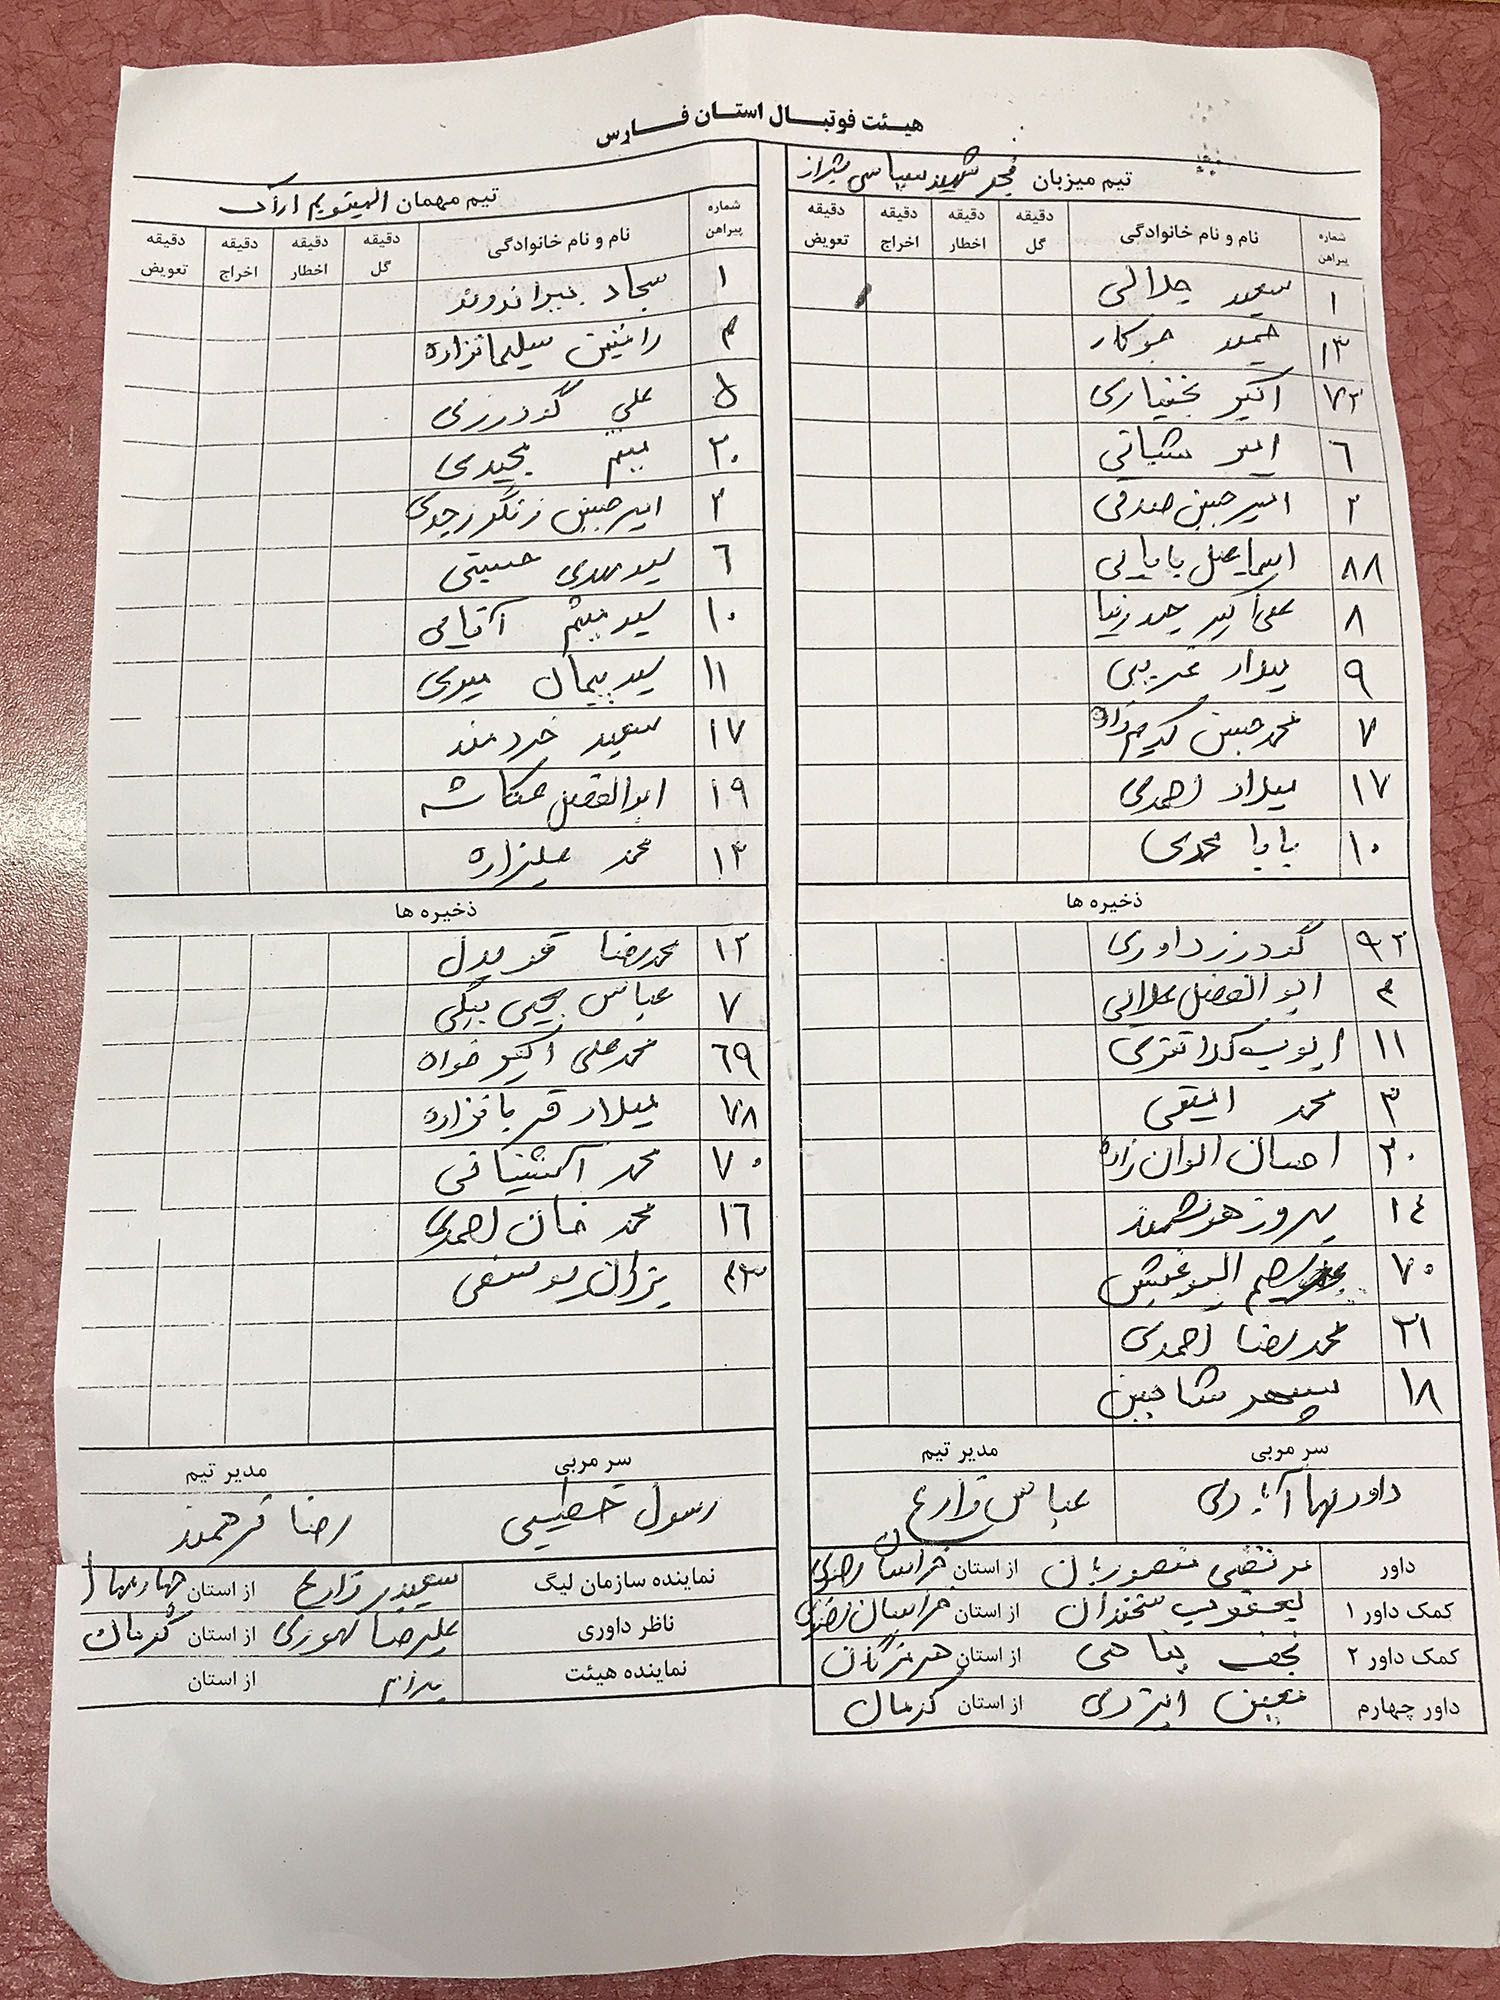 هیئت فوتبال استان فارس
تیم میزبان فجر شهید سپاسی شیراز
شماره پیراهن نام و نام خانوادگی دقیقه گل دقیقه اخطار دقیقه اخراج دقیقه تعویض
۱ سعید جلالی
۱۳ حمید جوکار
۷۳ اکبر بختیاری
۶ امیر شبانی
۲ امیرحسین صدقی
۸۸ اسماعیل بابایی
۸ علی اکبر حیدرنیا
۹ میلاد غریبی
۷ محمدحسین کریم زاده
۱۷ میلاد احمدی
۱۰ بابا محمدی
ذخیره ها
۹۲ گودرز داوری
۴ ابوالفضل علائی
۱۱ ایوب کلانتری
۳ محمد
۲۰ احسان الوان زاده
۱۴ بهروز هوشمند
۷۰
۲۱ محمدرضا احمدی
۱۸ سپهر شاهین
سر مربی مدیر تیم
داود مهابادی عباس زارع
داور مرتضی منصوریان از استان خراسان رضوی
کمک داور ۱ یعقوب سخندان از استان خراسان رضوی
کمک داور ۲ نجف پناهی از استان هرمزگان
داور چهارم معین از استان کرمان
تیم مهمان آلومینیوم اراک
شماره پیراهن نام و نام خانوادگی دقیقه گل دقیقه اخطار دقیقه اخراج دقیقه تعویض
۱ سجاد بیرانوند
۴ رامتین سلیمانزاده
۵ علی گودرزی
۲۰ میثم مجیدی
۲ امیرحسین
۶ سیدمهدی حسینی
۱۰ سید میثم آقایی
۱۱ سید پیمان میری
۱۷ سعید خردمند
۱۹ ابوالفضل عکاشه
۱۳ محمد علیزاده
ذخیره ها
۱۲ محمدرضا
۷ عباس یحیی بیگی
۶۹ محمدعلی اکبرخواه
۷۸ میلاد قربانزاده
۷۰ محمد آشتیانی
۱۶ محمد خان احمدی
یزدان یوسفی
سر مربی مدیر تیم
رسول خطیبی رضا فرهمند
نماینده سازمان لیگ سعید زارع از استان
ناظر داوری علیرضا از استان کرمان
نماینده هیئت از استان